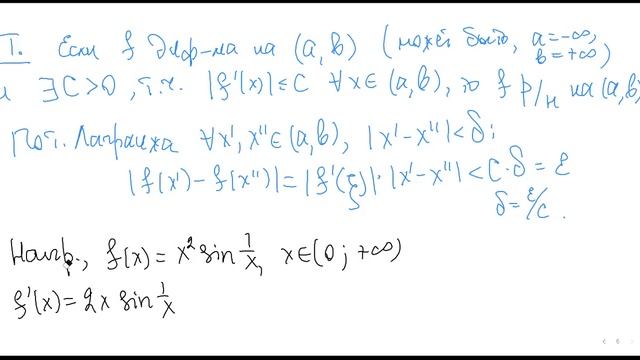 Т. Если f диф-ма на (a, b) (может быть, a = -∞, b = +∞)
и ∃ C > 0, т.ч. |f'(x)| ≤ C ∀x ∈ (a, b), то f р/н на (a, b)
По т. Лагранжа ∀x', x'' ∈ (a, b), |x' - x''| < δ:
|f(x') - f(x'')| = |f'(ξ)| · |x' - x''| < C · δ = ε
δ = ε/C.
Напр., f(x) = x² sin 1/x, x ∈ (0; +∞)
f'(x) = 2x sin 1/x
6